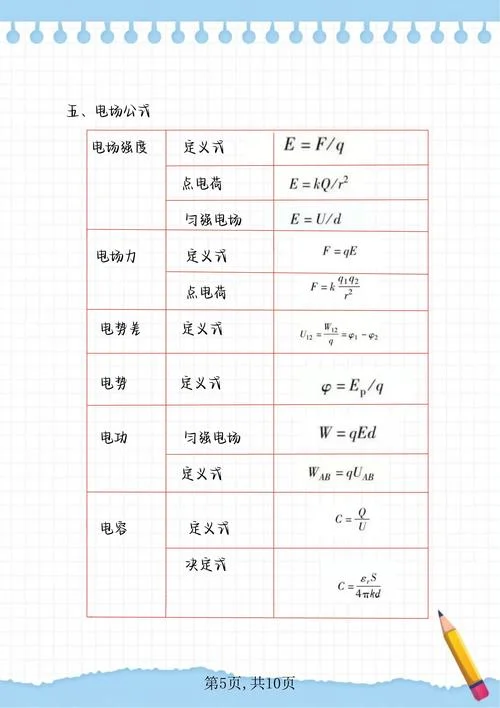 五、电场公式
电场强度 定义式 E = F/q
点电荷 E = kQ/r²
匀强电场 E = U/d
电场力 定义式 F = qE
点电荷 F = k q₁q₂/r²
电势差 定义式 U₁₂ = W₁₂/q = φ₁ − φ₂
电势 定义式 φ = Eₚ/q
电功 匀强电场 W = qEd
定义式 W_AB = qU_AB
电容 定义式 C = Q/U
决定式 C = εᵣS/4πkd
第5页,共10页